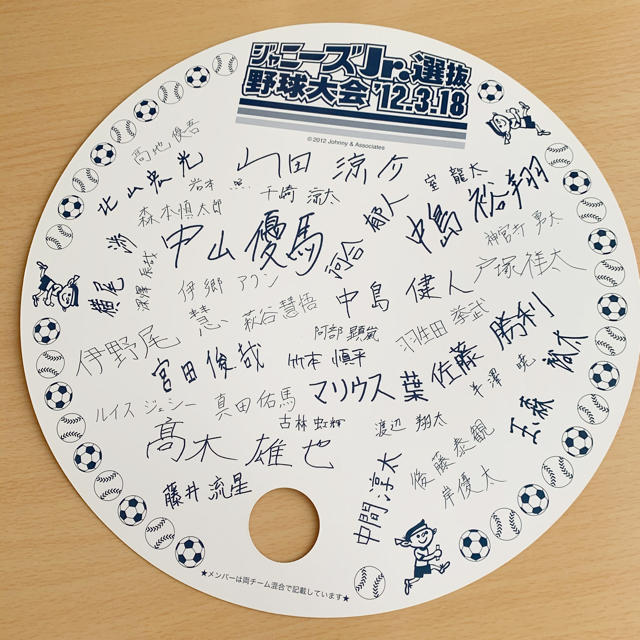 ジャニーズJr.選抜
野球大会'12.3.18
© 2012 Johnny & Associates
髙地 優吾
北山宏光
岩本 照
山田 涼介
室 龍太
森本慎太郎
千崎 涼太
郁人
河合
中島 裕翔
神宮寺 勇太
横尾 渉
深澤 辰哉
中山優馬
伊郷 アクン
中島 健人
戸塚祥太
伊野尾 慧
萩谷慧悟
阿部 顕嵐
羽生田 挙武
勝利
佐藤
宮田俊哉
竹本 慎平
マリウス 葉
半澤 暁
玉森 裕太
ルイス ジェシー
真田佑馬
古林 虹輝
渡辺 翔太
髙木 雄也
後藤泰観
岸優太
藤井 流星
中間 淳太
★メンバーは両チーム混合で記載しています★